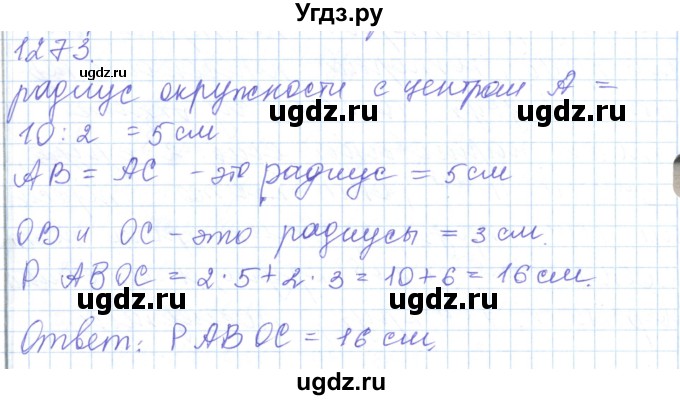 Угдз.ру
1273.
ugdz.ru
ugdz.ru
радиус окружности с центром А =
ugdz.ru
ugdz.ru
10 : 2 = 5 см
АВ = АС - это радиус = 5 см
ugdz.ru
ОВ и ОС - это радиусы = 3 см.
Р АВОС = 2 · 5 + 2 · 3 = 10 + 6 = 16 см.
ugdz.ru
ugdz.ru
Ответ: Р АВОС = 16 см.
ugdz.ru
ugdz.ru